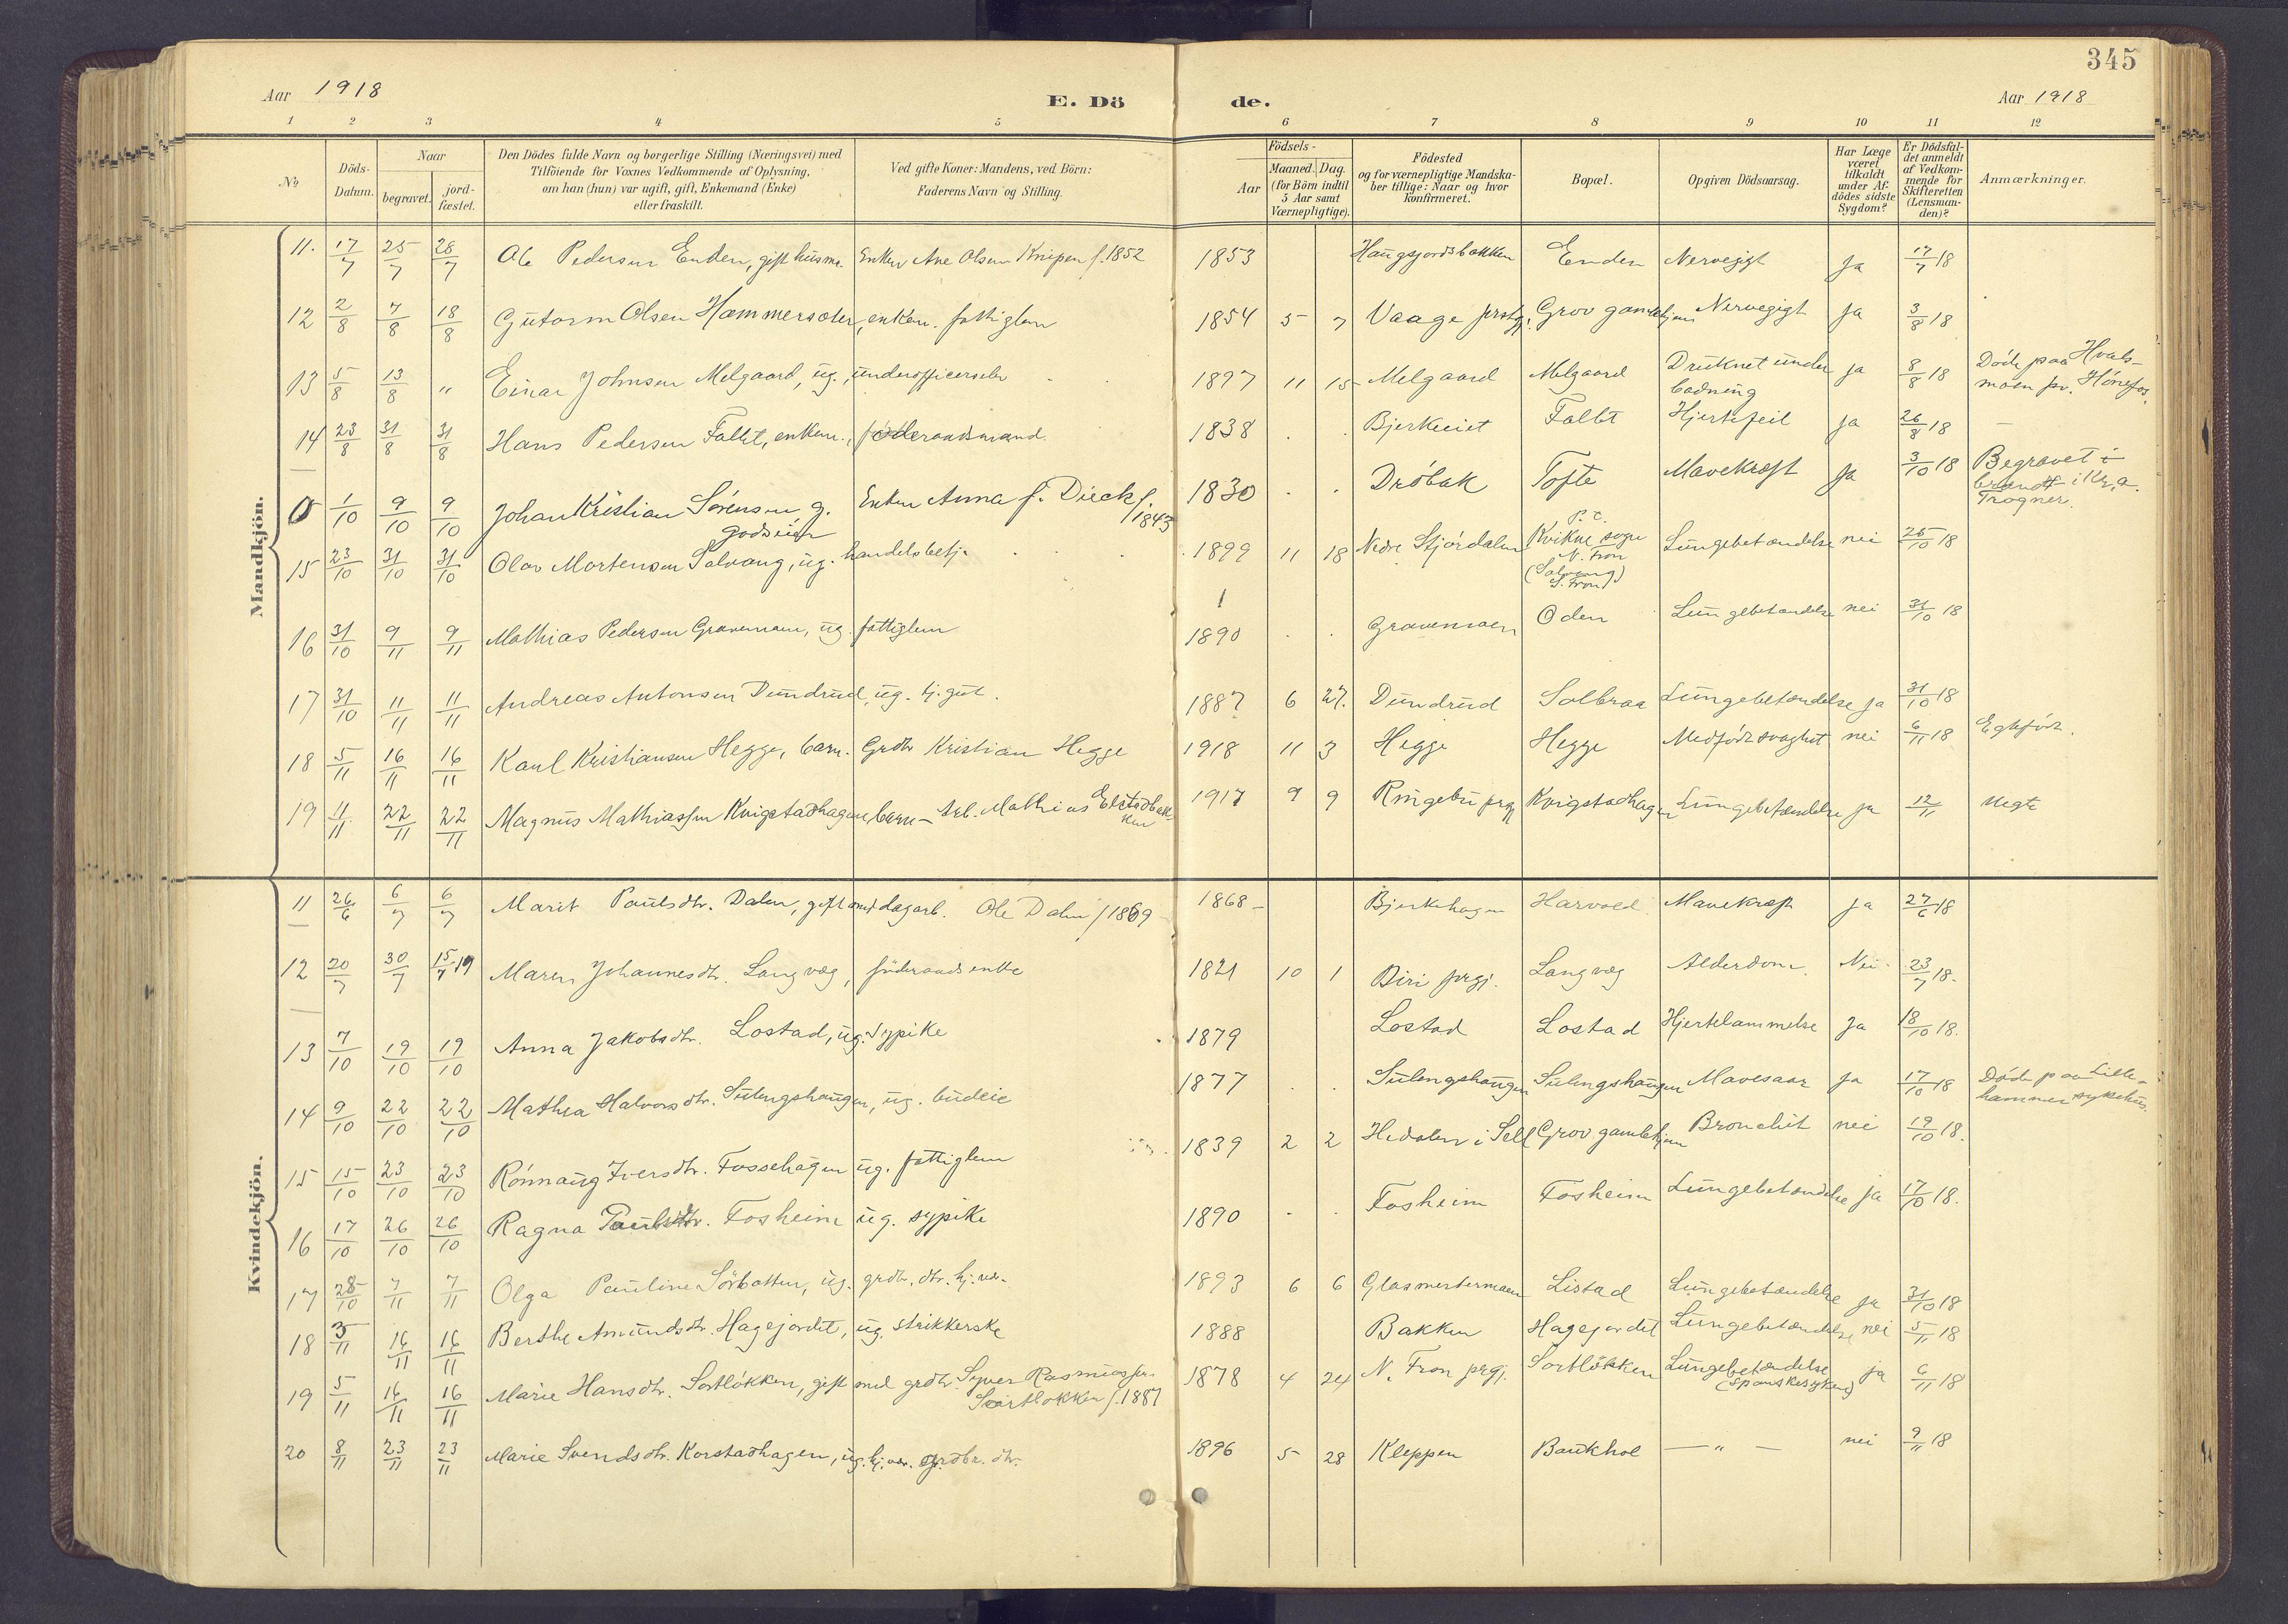 345
Aar 1918
E. Dö
de.
Aar 1918
1 2 3 4 5 6 7 8 9 10 11 12
№
Döds-Datum.
Naar
begravet.
jord-fæstet.
Den Dödes fulde Navn og borgerlige Stilling (Næringsvei) med
Tilföiende for Voxnes Vedkommende af Oplysning,
om han (hun) var ugift, gift, Enkemand (Enke)
eller fraskilt.
Ved gifte Koner: Mandens, ved Börn:
Faderens Navn og Stilling.
Födsels-
Aar
Maaned.
Dag.
(for Börn indtil
5 Aar samt
Værnepligtige).
Födested
og for værnepligtige Mandska-
ber tillige: Naar og hvor
konfirmeret.
Bopæl.
Opgiven Dödsaarsag.
Har Læge
været
tilkaldt
under Af-
dödes sidste
Sygdom?
Er Dödsfal-
det anmeldt
af Vedkom-
mende for
Skifteretten
(Lensman-
den)?
Anmærkninger.
Mandkjön.
11. 17/7 25/7 28/7 Ole Pedersen Enden, gift husm. Enken Ane Olsen Knipen f. 1852 1853 Haugsjordsbakken Enden Nervegigt Ja 17/7 18
12 2/8 7/8 18/8 Gutorm Olsen Hammersæter, enkem. fattiglem 1854 5 7 Vaage prstgj. Grov gamlehjem Nervegigt Ja 3/8 18
13 5/8 13/8 " Einar Johnsen Melgaard, ug., underofficerselev 1897 11 15 Melgaard Melgaard Druknet under badning ja 8/8 18 Døde paa Hvals-
moen pr. Hønefos.
14 23/8 31/8 31/8 Hans Pedersen Fallet, enkem., föderaadsmand. 1838 Bjerkeeiet Fallet Hjertefeil Ja 26/8 18 —
0 1/10 9/10 9/10 Johan Kristian Sørensen g. godseier Enken Anna f. Dieck f. 1843 1830 Drøbak Tofte Mavekræft Ja 3/10 18 Begravet i
brandt i Kr.a.
Trogner.
15 23/10 31/10 31/10 Olav Mortensen Solvang, ug. handelsbetj. 1899 11 18 Nedre Stjørdalen P.t. Kvikne sogn N. Fron (Solvang) S. Fron) Lungebetændelse nei 25/10 18
16 31/10 9/11 9/11 Mathias Pedersen Gravemoen, ug. fattiglem 1890 Gravemoen Oden Lungebetændelse nei 31/10 18
17 31/10 11/11 11/11 Andreas Antonsen Dundrud, ug. tj.gut. 1887 6 27. Dundrud Solbraa Lungebetændelse ja 31/10 18
18 5/11 16/11 16/11 Karl Kristiansen Hegge, barn. Grdbr Kristian Hegge 1918 11 3 Hegge Hegge Medfødt svaghet nei 6/11 18 Egtefødt.
19 11/11 22/11 22/11 Magnus Mathiassen Kvigstadhagen barn – arb. Mathias Elstadbakken 1917 9 9 Ringebu prgj Kvigstadhagen Lungebetændelse ja 12/11 Uegte
Kvindekjön.
11 26/6 6/7 6/7 Marit Paulsdtr. Dalen, gift med dagarb. Ole Dalen f 1869 1868 Bjerkehagen Harvold. Mavekræft ja 27/6 18
12 20/7 30/7 15/4 19 Maren Johannesdtr. Langvæg, föderaadsenke 1821 10 1 Biri prgj. Langvæg Alderdom. Nei 23/7 18.
13 7/10 19/10 19/10 Anna Jakobsdtr. Lostad, ug. sypike 1879 Lostad Lostad Hjertelammelse Ja 18/10 18.
14 9/10 22/10 22/10 Mathea Halvorsdtr. Sulengshaugen, ug. budeie 1877 Sulengshaugen Sulengshaugen Mavesaar ja 17/10 18 Døde paa Lille-
hammer sykehus.
15 15/10 23/10 23/10 Rønnaug Iversdtr. Fossehagen ug. fattiglem 1839 2 2 Hedalen i Sell Grov gamlehjem Bronchit nei 19/10 18.
16 17/10 26/10 26/10 Ragna Paulsdtr. Fosheim ug. sypike 1890 Fosheim Fosheim Lungebetændelse ja 17/10 18.
17 28/10 7/11 7/11 Olga Pauline Sörbotten, ug. grdbr. dtr. hj. vær. 1893 6 6 Glasmestermoen Listad Lungebetændelse ja 31/10 18
18 3/11 16/11 16/11 Berthe Amundsdtr. Hagejordet, ug. strikkerske 1888 Bakken Hagejordet Lungebetændelse nei 5/11 18
19 5/11 16/11 16/11 Marie Hansdtr. Sortløkken, gift med grdbr. Syver Rasmussen Svartløkken f. 1887 1878 4 24 N. Fron prgj. Sortløkken Lungebetændelse (Spanskesyken) ja 6/11 18
20 8/11 23/11 23/11 Marie Svendsdtr. Korstadhagen, ug. hj. vær. grdbr. dtr. 1896 5 28 Kleppen Baukhol — " — nei 9/11 18